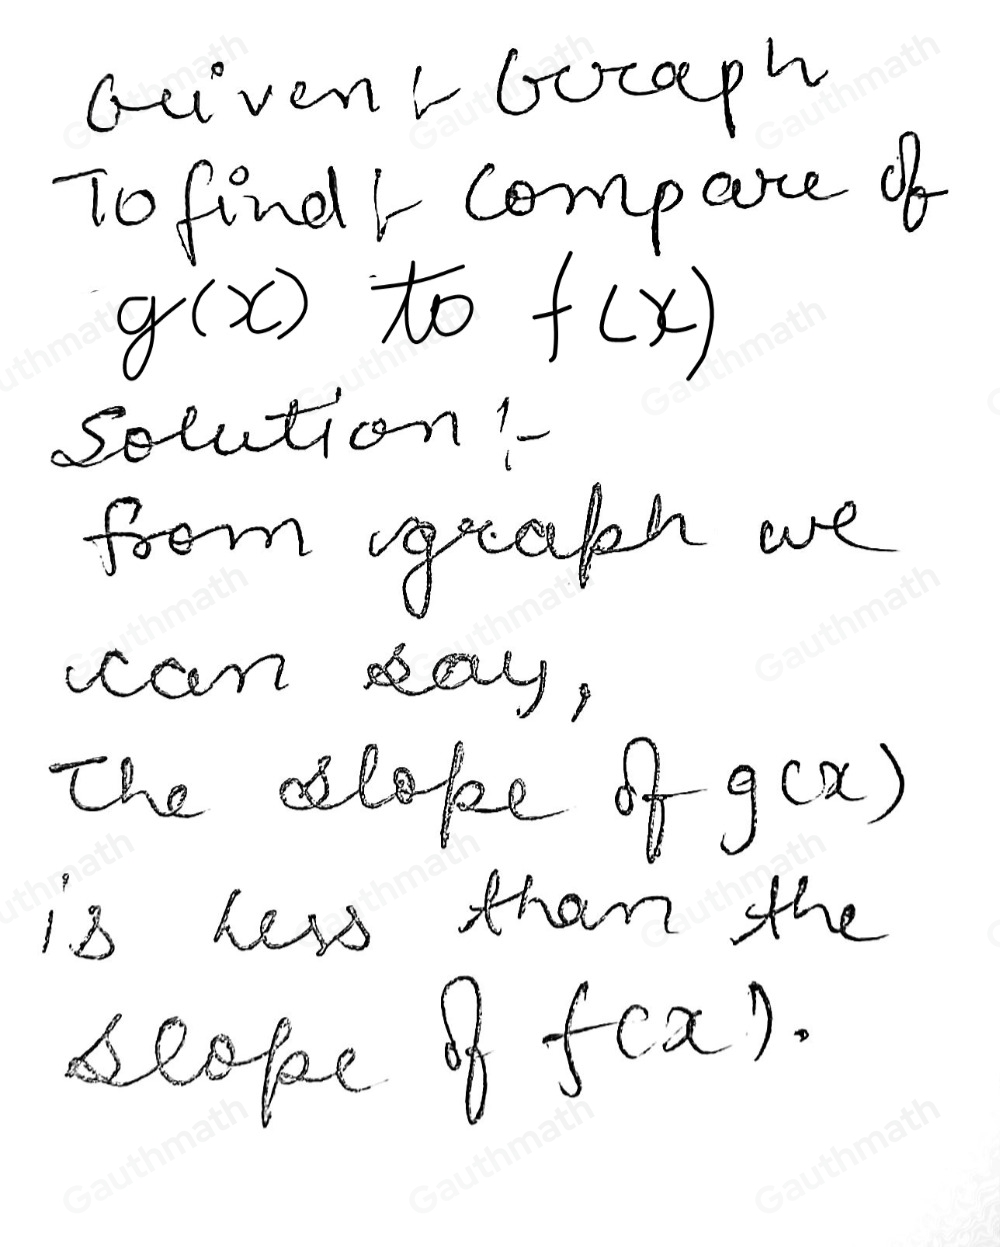 Given :- Graph
To find :- Compare of
g(x) to f(x)
Solution :-
from graph we
can say,
The slope of g(x)
is less than the
slope of f(x).